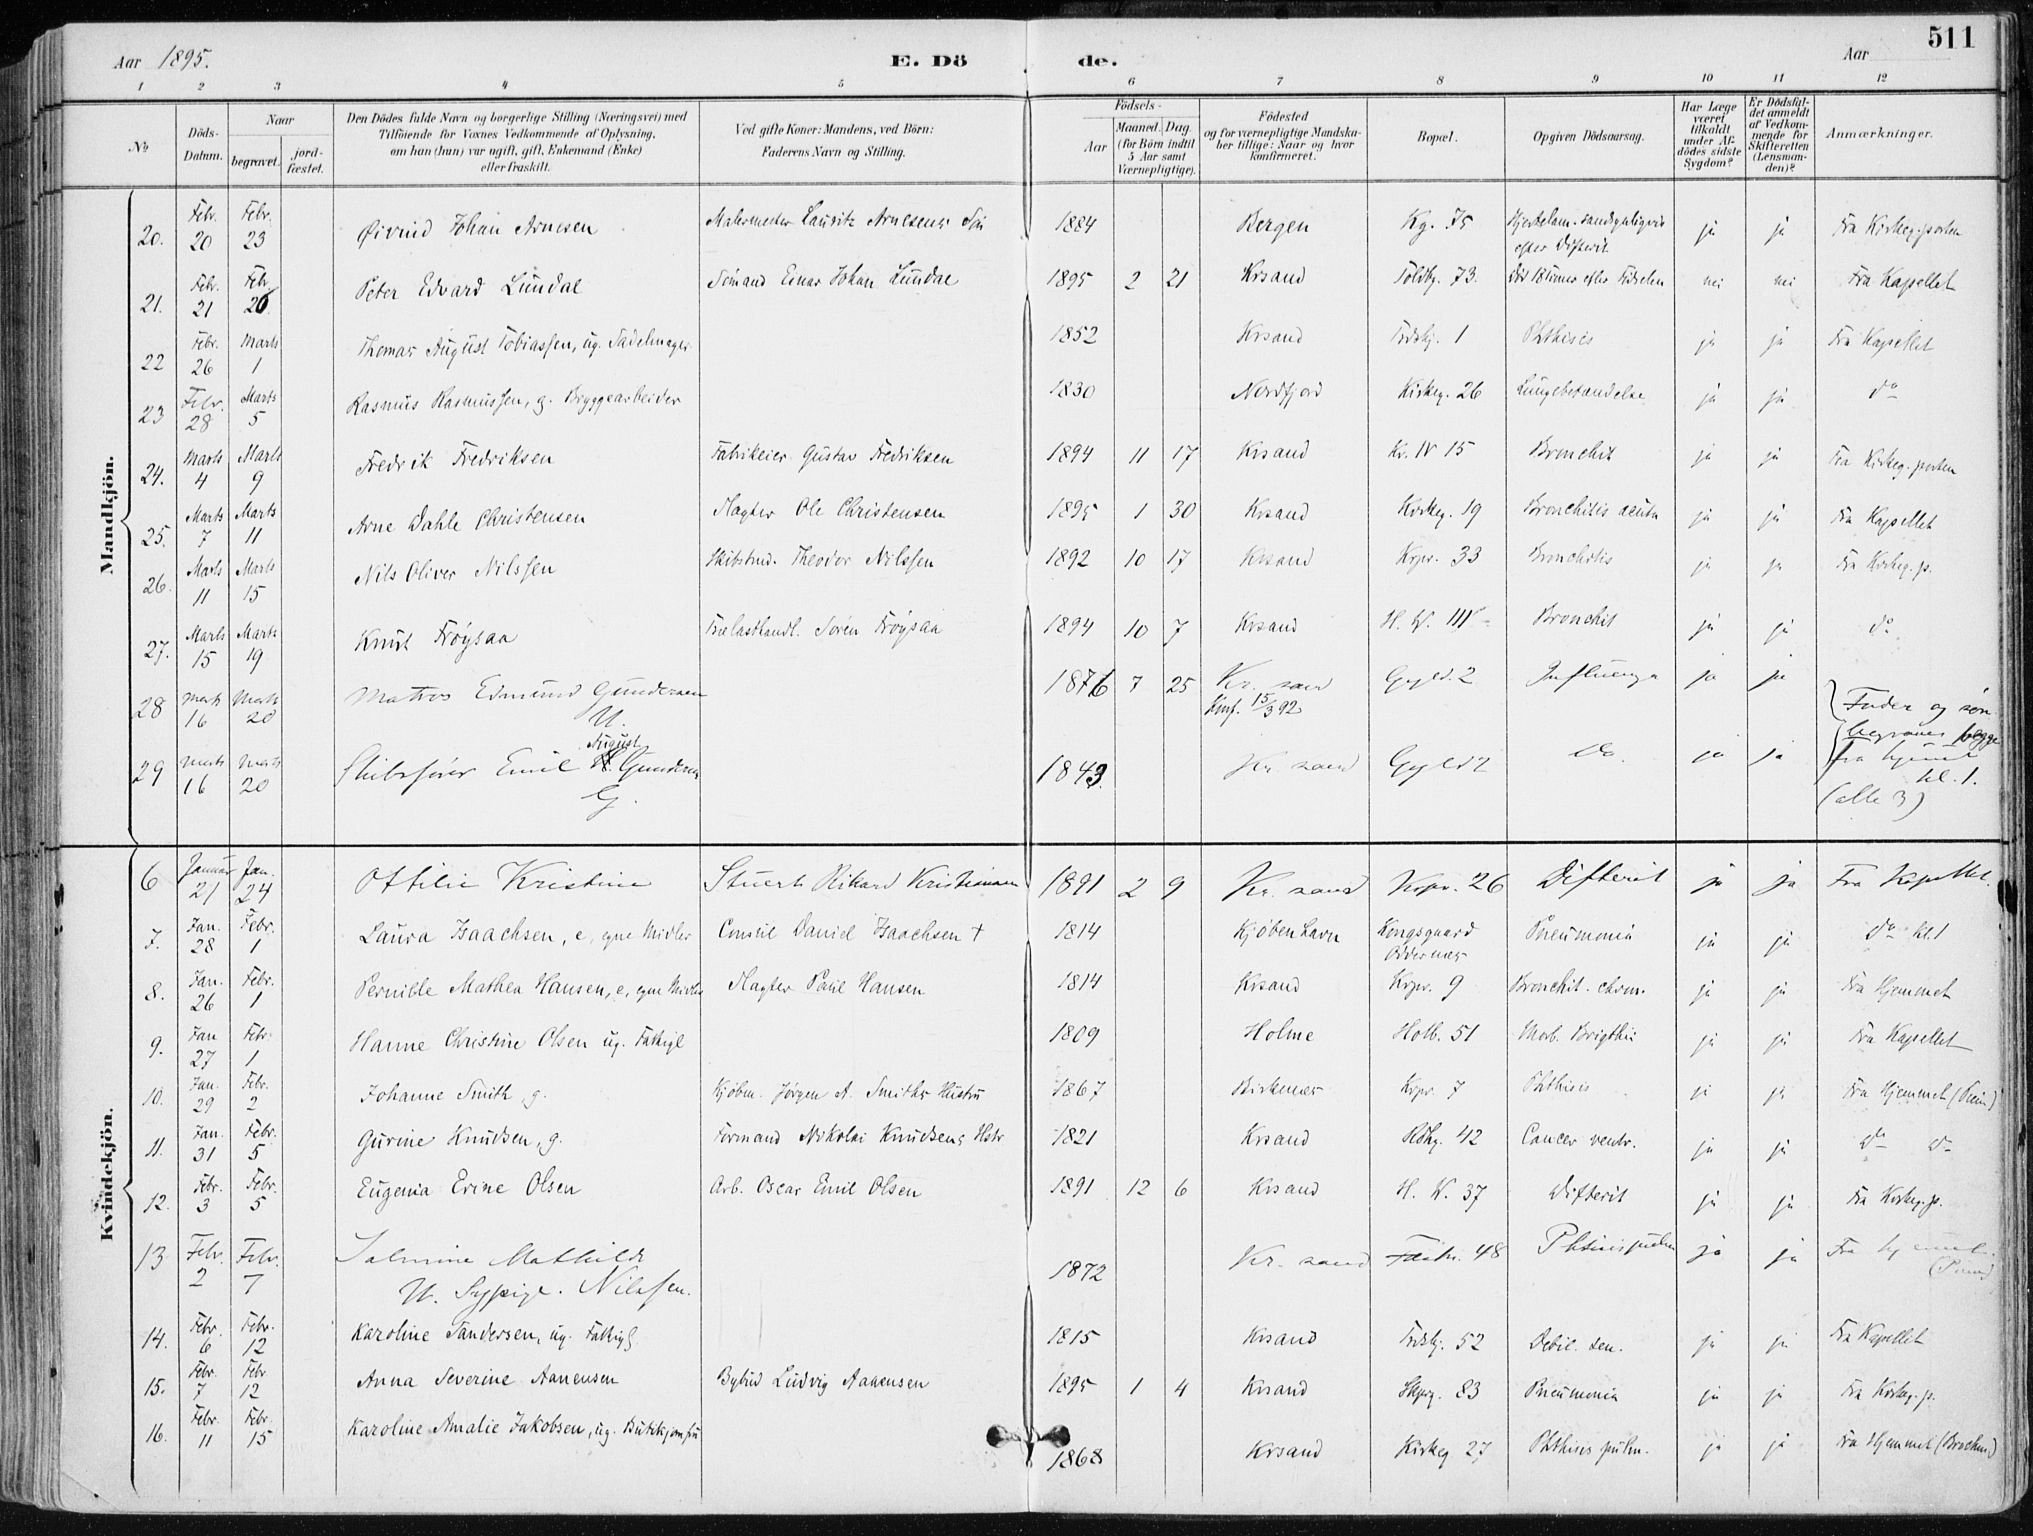 Aar 1895. E. Dö de. Aar 511
1 2 3 4 5 6 7 8 9 10 11 12
№
Döds-Datum.
Naar
begravet.
jord-fæstet.
Den Dödes fulde Navn og borgerlige Stilling (Næringsvei) med
Tilföiende for Voxnes Vedkommende af Oplysning,
om han (hun) var ugift, gift, Enkemand (Enke)
eller fraskilt.
Ved gifte Koner: Mandens, ved Börn:
Faderens Navn og Stilling.
Födsels-
Aar
Maaned. Dag.
(for Börn indtil
5 Aar samt
Værnepligtige).
Födested
og for værnepligtige Mandska-
ber tillige: Naar og hvor
konfirmeret.
Bopæl.
Opgiven Dödsaarsag.
Har Læge
været
tilkaldt
under Af-
dödes sidste
Sygdom?
Er Dödsfal-
det anmeldt
af Vedkom-
mende for
Skifteretten
(Lensman-
den)?
Anmærkninger.
Mandkjön.
20. Febr. 20 Febr. 23 Øivind Johan Arnesen Malermester Lauritz Arnesens Søn 1884 Bergen Kg. 75 Hjertelam. sandsynligvis efter Difterit ja ja Fra Kirkeg.porten
21. Febr. 21 Febr. 26 Peter Edvard Lundal Sømand Einar Johan Lundal 1895 2 21 Krsand Toldbg. 73. Død 18 timer efter Fødselen nei nei Fra Kapellet
22 Febr. 26 Marts 1 Thomas August Tobiassen, ug. Sadelmager 1852 Krsand Frdskj. 1 Phthisis ja ja Fra Kapellet
23 Febr. 28 Marts 5 Rasmus Rasmussen, g. Bryggearbeider 1830 Nordfjord Kirkeg. 26 Lungebetændelse ja ja do
24. Marts 4 Marts 9 Fredrik Fredriksen Fabrikeier Gustav Fredriksen 1894 11 17 Krsand Kv. IV 15 Bronchit ja ja Fra Kirkeg.porten
25. Marts 7 Marts 11 Arne Dahle Christensen Slagter Ole Christensen 1895 1 30 Krsand Kirkeg. 19 Bronchitis acuta ja ja Fra Kapellet
26. Marts 11 Marts 15 Nils Oliver Nilssen Skibstmd. Theodor Nilssen 1892 10 17 Krsand Krpr. 33 Bronchitis ja ja Fra Kirkeg.p.
27. Marts 15 Marts 19 Knut Frøysaa Trælasthandl. Søren Frøysaa 1894 10 7 Krsand H. W. III Bronchit ja ja do
28 Marts 16 Marts 20 Matros Edmund Gundersen U. 1876 7 25 Kr. sand Konf. 15/3 92 Gyld. 2 Influenza ja ja
29 Marts 16 Marts 20 Skibsfører Emil August Gundersen G. 1843. Kr. sand Gyld 2 do ja ja
Fader og søn
begraves begge
fra hjemmet
kl. 1.
(alle 3)
Kvindekjön.
6 Januar 21 Jan. 24 Ottilie Kristine Stuert Rikard Kristiansen 1891 2 9 Kr. sand Krpr. 26 Difterit ja ja Fra Kapellet.
7. Jan. 28 Febr. 1 Laura Isaachsen, e, egne Midler Consul Daniel Isaachsen † 1814 Kjøbenhavn Kongsgaard Oddernes Pneumonia ja ja do kl. 1
8. Jan. 26 Febr. 1 Pernille Mathea Hansen, e, egne Midler Slagter Paul Hansen 1814 Krsand Krpr. 9 Bronchit. chron. ja ja Fra Hjemmet
9. Jan 27 Febr. 1 Hanne Christine Olsen ug. Fattigl 1809 Holme Holb. 51 Morb. Brigthii ja ja Fra Kapellet
10. Jan. 29 Febr. 2 Johanne Smith g. Kjøbm. Jørgen A. Smiths Hustru 1867 Birkenes Krpr. 7 Phthisis ja ja Fra Hjemmet
11. Jan. 31 Febr. 5 Gurine Knudsen, g. Formand Nikolai Knudsens Hstr 1821 Krsand Rdhg. 42 Cancer ventr. ja ja do do
12. Febr. 3 Febr. 5 Eugenia Erine Olsen Arb. Oscar Emil Olsen 1891 12 6 Krsand H. W. 37 Difterit ja ja Fra Kirkeg.p.
13 Febr. 2 Febr. 7 Salmine Mathilde U. Sypige. Nilssen. 1872 Kr. sand 48 Phtisis pulm ja ja Fra hjemmet.
14. Febr. 6 Febr. 12 Karoline Tandersen, ug. Fattigl. 1815 Krsand Frdskj. 52 Debil. sen. ja ja Fra Kapellet
15. Febr. 7 Febr 12 Anna Severine Aanensen Bybud Ludvig Aanensen 1895 1 4 Krsand Skpg. 83 Pneumonia ja ja Fra Kirkeg.p.
16. Febr. 11 Febr. 15 Karoline Amalie Jakobsen, ug. Butikjomfru 1868 Krsand Kirkeg 27 Phthisis pulm. ja ja Fra Hjemmet